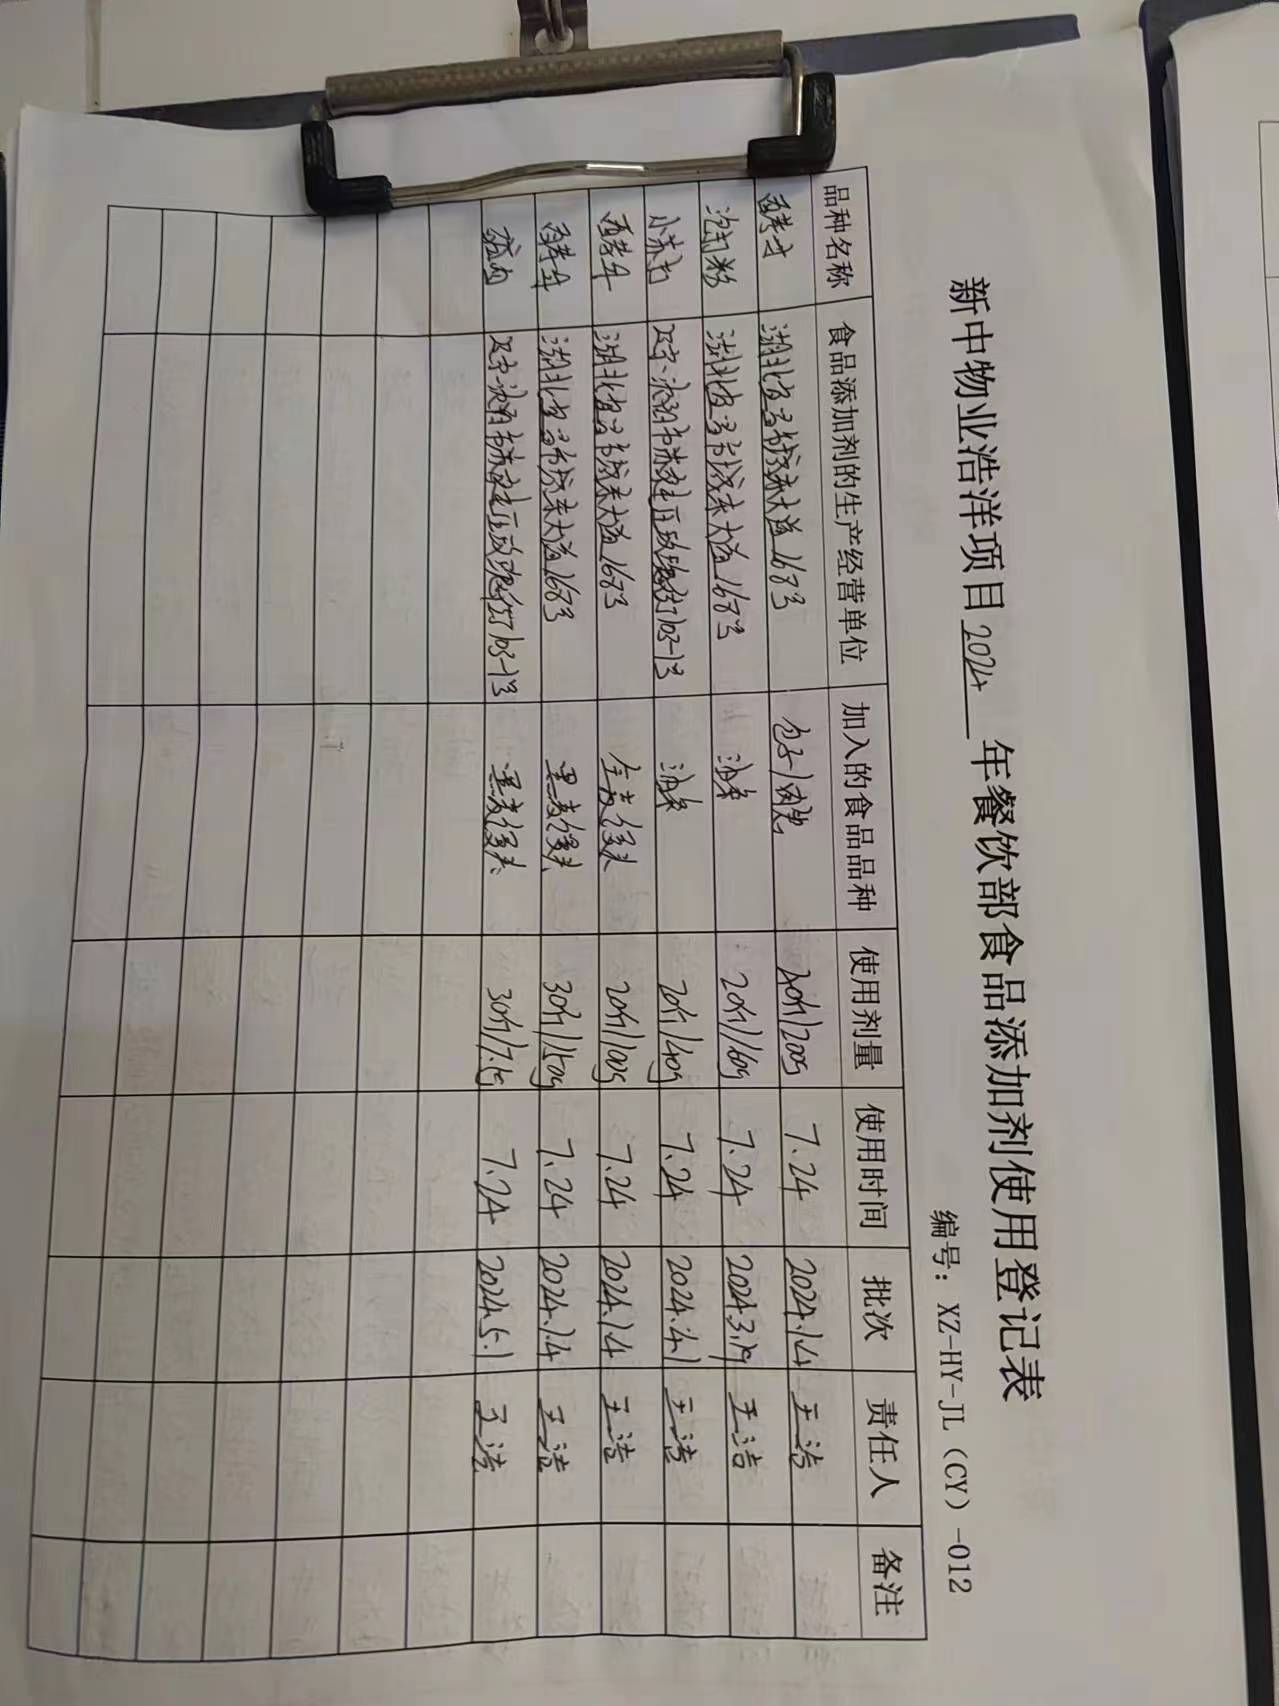 新中物业浩洋项目2024年餐饮部食品添加剂使用登记表
编号：XZ-HY-JL（CY）-012
品种名称 食品添加剂的生产经营单位 加入的食品品种 使用剂量 使用时间 批次 责任人 备注
酵母 湖北省宜昌市城东大道1683 包子/ 40斤/200g 7.24 2024.1.4 王洁
泡打粉 湖北省宜昌市城东大道1683 油条 20斤/160g 7.24 2024.3.19 王洁
小苏打 103-13 油条 20斤/40g 7.24 2024.4.1 王洁
酵母 湖北省宜昌市城东大道1683 全麦馒头 20斤/100g 7.24 2024.1.4 王洁
酵母 湖北省宜昌市城东大道1683 黑麦馒头 30斤/150g 7.24 2024.1.4 王洁
103-13 黑麦馒头 30斤/7.5g 7.24 2024.5.1 王洁